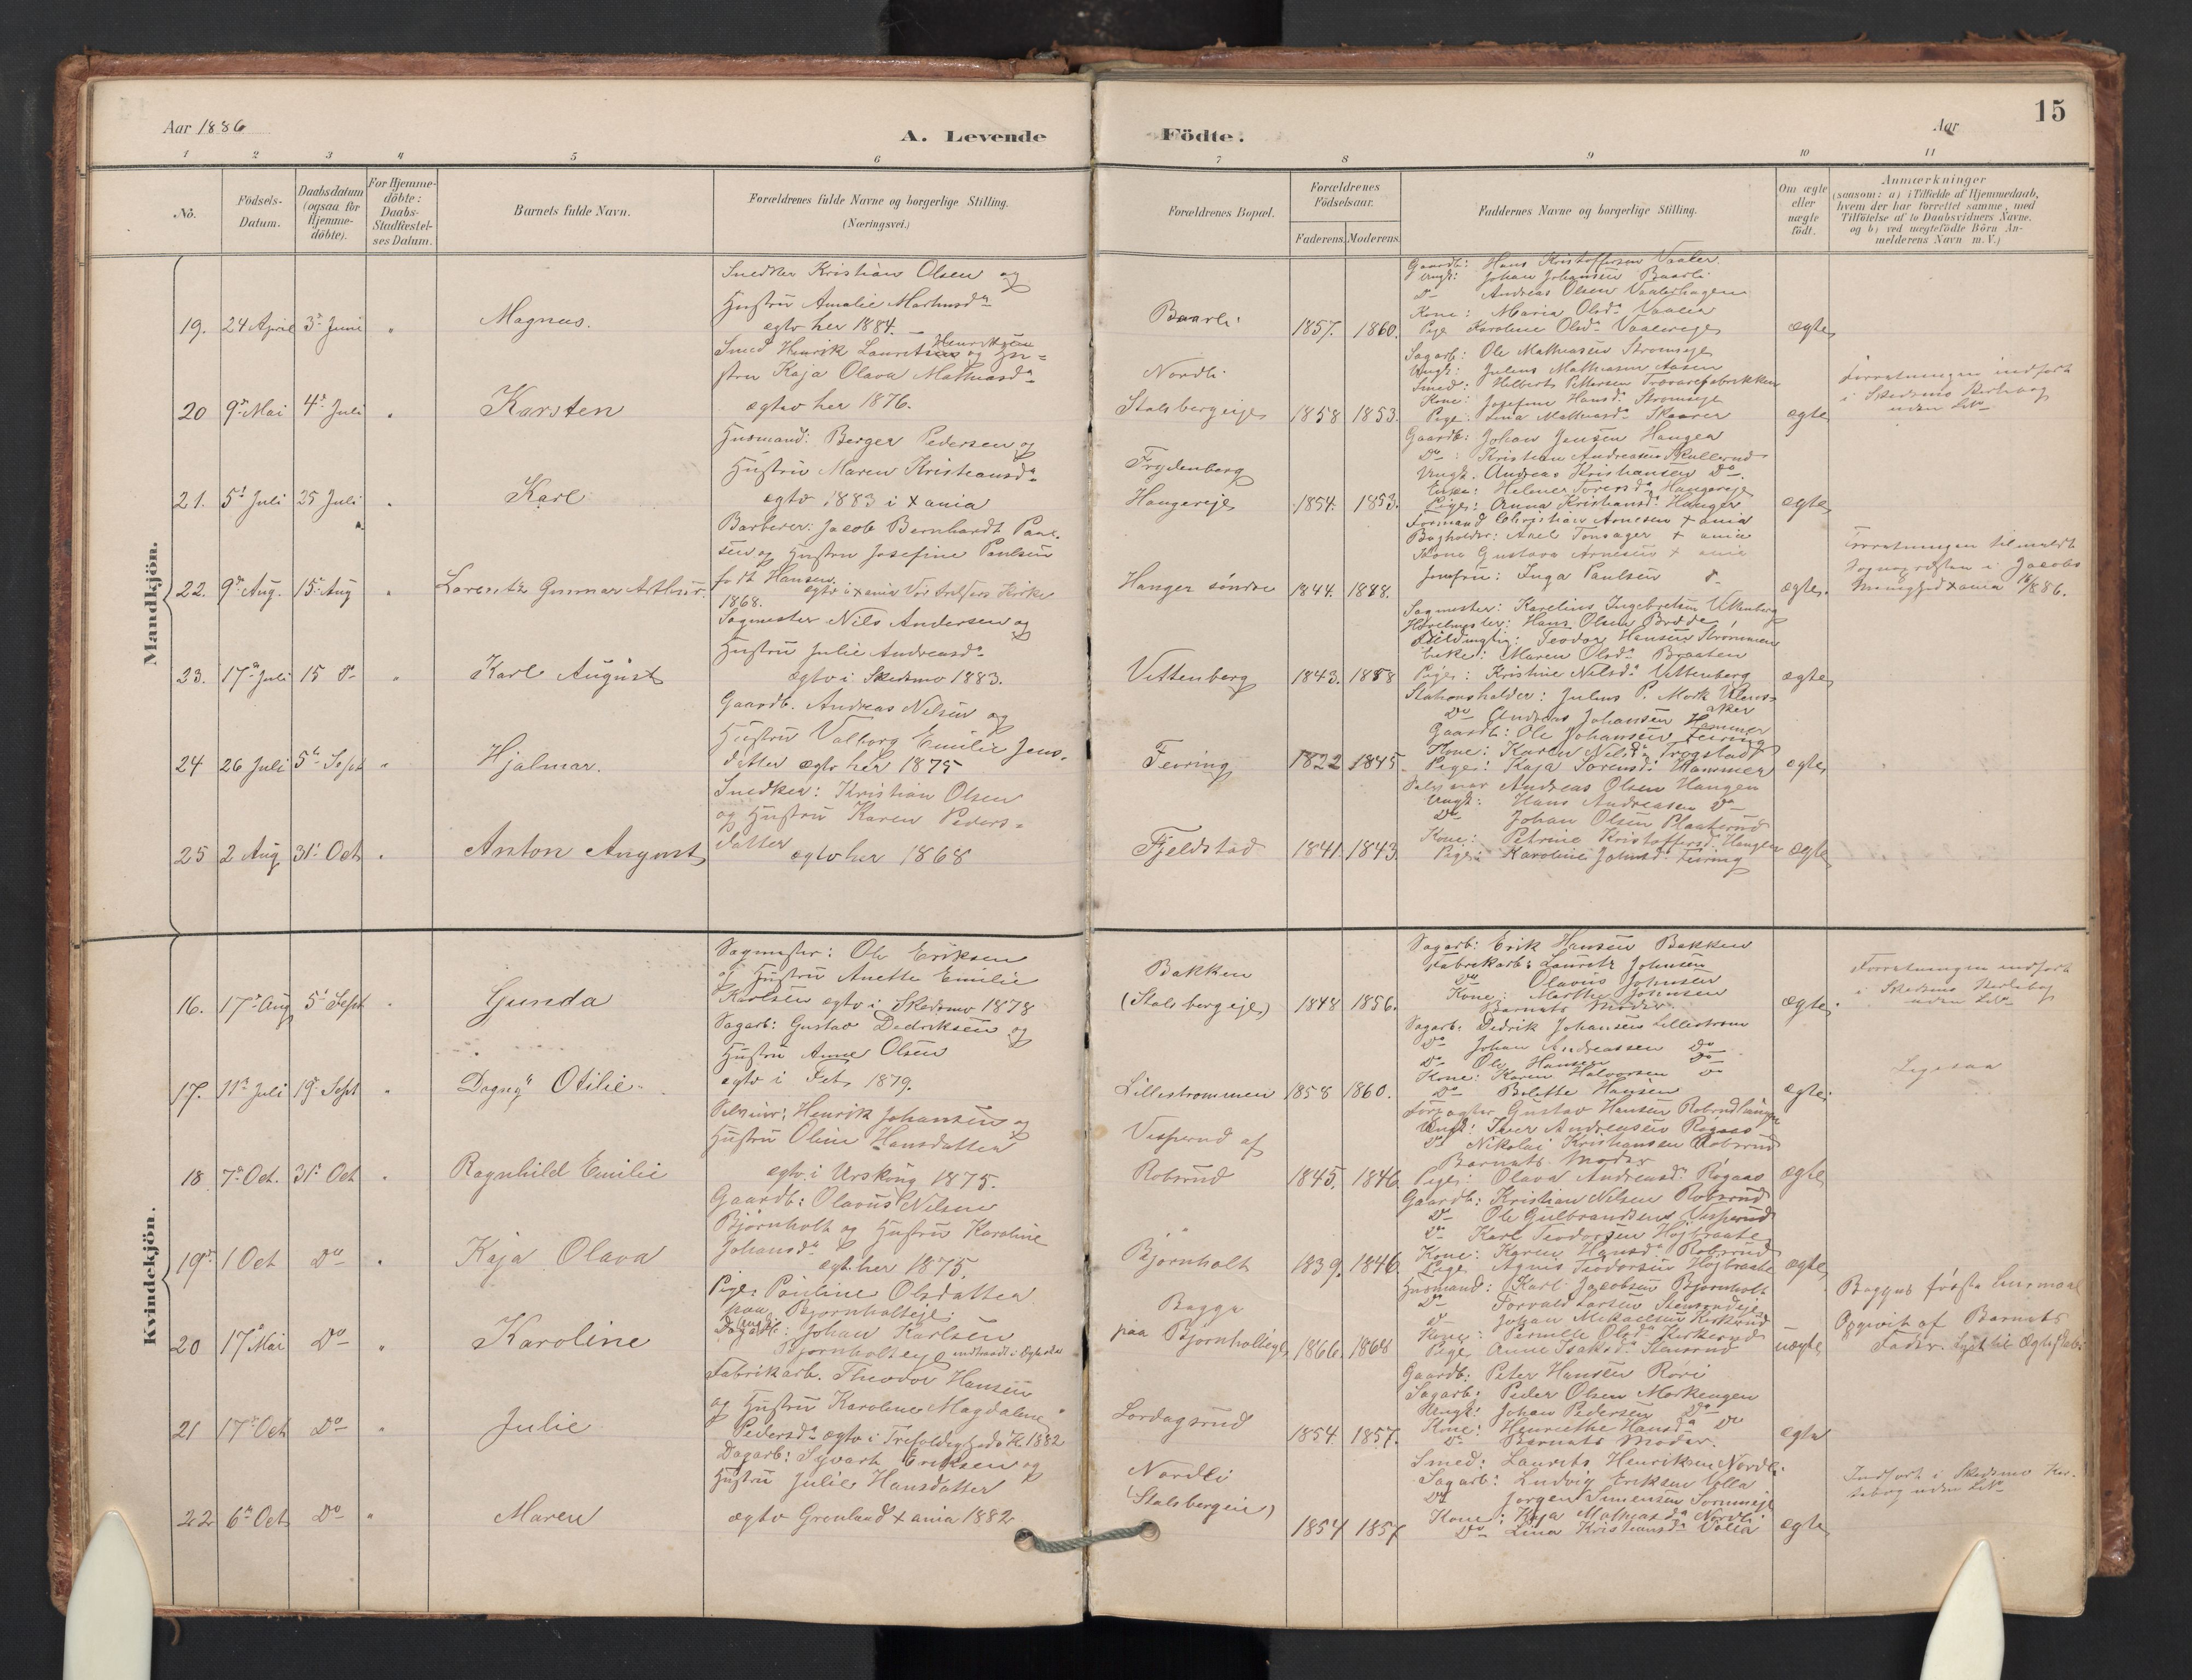 15
Aar 1886
A. Levende Födte.
Aar
1 2 3 4 5 6 7 8 9 10 11
No.
Födsels-Datum.
Daabsdatum (ogsaa for Hjemme-döbte).
For Hjemme-döbte: Daabs-Stadfæstel-ses Datum.
Barnets fulde Navn.
Forældrenes fulde Navne og borgerlige Stilling.
(Næringsvei.)
Forældrenes Bopæl.
Forældrenes Födselsaar.
Faderens. Moderens.
Faddernes Navne og borgerlige Stilling.
Om ægte eller uægte født.
Anmærkninger
(saasom: a) i Tilfælde af Hjemmedaab,
hvem der har forrettet samme, med
Tilföielse af to Daabsvidners Navne.
og b) ved uægtefödte Börn An-
melderens Navn m. V.)
Mandkjön.
19. 24 April 3die Juni " Magnus.
Snedker Kristian Olsen og
Hustru Amalie Markusdr
egtv her 1884.
Baarli 1857. 1860.
Gaardb: Hans Kristoffersen Vaaler.
Ungk: Johan Johansen Baarli
Do Andreas Olsen Vaalerhagen
Kone: Maria Olsdr Vaaler
Pige Karoline Olsdr Vaalereje
ægte
20 9de Mai 4de Juli " Karsten
Smed Henrik Lauritsen Henriksen og Hu-
stru Kaja Olava Mathiasdr
egtev her 1876.
Nordli
Stalsbergeje 1858 1853.
Sagarb: Ole Mathiasen Stromseje
Ungk: Julius Mathiasen Aasen
Smed: Helbert Pettersen Trævarefabrikken
Kone: Josefine Hansdr Stromseje
Pige: Lina Mathiasdr Skaarer
ægte
Forretningen indført
i Skedsmo Kirkebog
uden No
21. 5te Juli 25 Juli " Karl
Husmand: Berger Pedersen og
Hustru Maren Kristiansdr
egtv 1883 i Xania
Frydenberg
Haugereje 1854. 1853.
Gaardb: Johan Jensen Hauger
Do: Kristian Andreasen Skullerud
Ungk. Andreas Kristiansen Do
Enke: Helene Toresdr Haugereje
Pige: Anna Kristiansdr Hauger
ægte
22. 9de Aug. 15de Aug " Lorentz Gunnar Arthur.
Barberer: Jacob Bernhardt Paul-
sen og Hustru Josefine Paulsen
født Hansen.
egtv i Xania Vor Frelsers Kirke
1868.
Hauger söndre 1844. 1848.
Formand Christian Arnesen Xania
Bogholder: Axel Tonsager Xania
Kone Gustava Arnesen Xania
Jomfru: Inga Paulsen Do
ægte.
Forretningen tilmeldt
Sognepresten i Jacobs
Menighed Xania 18/8 86.
23. 17de Juli 15 Do " Karl August
Sagmester Nils Andersen og
Hustru Julie Andreasdr
egtv i Skedsmo 1883.
Vittenberg 1843. 1858
Sagmester: Karelius Ingebretsen Vittenberg
Hovelmester: Hans Olsen Brode
Teodor Hansen Strommen
Enke: Maren Olsdr Braaten
Pige: Kristine Nilsdr Vittenberg
ægte
24 26 Juli 5te Sept " Hjalmar.
Gaardb. Andreas Nilsen og
Hustru Valborg Emilie Jens-
datter egtv her 1875
Feiring 1822 1845.
Stationsholder: Julius P. Mork Ulens-
aker
Do Andreas Johansen Hammer
Gaardb: Ole Johansen Feiring
Kone: Karen Nilsdr Trogstad
Pige: Kaja Sorensdr Hammer
ægte
25 2 Aug 31te Oct. " Anton August
Snedker: Kristian Olsen
og Hustru Karen Peders-
datter
egtv her 1868
Fjeldstad 1841. 1843
Selveier Andreas Olsen Haugen
Ungk: Hans Andreasen Do
Do Johan Olsen Plaaterud
Kone: Petrine Kristoffersdr Haugen
Pige: Karoline Johansdr Feiring
ægte
Kvindekjön.
16. 17de Aug 5te Sept " Gunda
Sagmester: Ole Eriksen
og Hustru Anette Emilie
Karlsen egtv i Skedsmo 1878
Bakken
(Stalsbergeje) 1848 1856.
Sagarb: Erik Hansen Bakken
Fabrikarb: Lauritz Johnsen
Do Olavus Johnsen
Kone: Marthe Johnsen
Barnets Moder.
ægte.
Forretningen indført
i Skedsmo Kirkebog
uden No
17. 11te Juli 19de Sept " Dagny Otilie.
Sagarb: Gustav Dedriksen og
Hustru Anne Olsen
egtv i Fet 1879.
Lillestrommen 1858 1860.
Sagarb: Dedrik Johansen Lillestrom
Do Johan Andreassen Do
Do Ole Hansen Do
Kone: Karen Halvorsen Do
Do Bolette Hansen
ægte.
Ligesaa
18 7de Oct. 31te Oct " Ragnhild Emilie
Selveier: Henrik Johansen og
Hustru Oline Hansdatter
egtv. i Urskoug 1875.
Vesperud af
Robsrud 1845. 1846.
Forpagter Gustav Hansen Robsrudhaugen
Ungk: Iver Andreasen Rogaas
Do Nikolai Kristiansen Robsrud
Barnets Moder
Pige: Olava Andreasdr Rogaas
ægte
19de 1 Oct Do " Kaja Olava
Gaardb: Olavus Nilsen
Bjørnholt og Hustru Karoline
Johansdr
egt. her 1875.
Bjornholt 1839. 1846.
Gaardb: Kristian Nilsen Robsrud
Do Ole Gulbrandsen Vesperud
Do Karl Teodorsen Højbraate
Kone: Karen Hansdr Robsrud
Pige Agnis Teodorsen Højbraate
ægte
20 17de Mai Do " Karoline
Pige: Pauline Olsdatter
paa Bjornholteje
Dagarb: Ungk: Johan Karlsen
Bjornholteje indtraadt i Ægteskab
Begge
paa Bjornholteje 1866. 1868
Husmand: Karl Jacobsen Bjornholt
Do Torvald Larsen Stensrudeje
Do Johan Mikaelsen Kirkerud
Kone: Pernille Olsdr Kirkerud
Pige Anne Isaksdr Stensrud
uægte
Begges første Leiermaal
Opgivet af Barnets
Fader. Lyst til Ægteskab.
21 17de Oct Do " Julie
Fabrikarb. Theodor Hansen
og Hustru Karoline Magdalene
Pedersdr egtv i Trefoldigheds K. 1882
Lordagsrud 1854. 1857.
Gaardb: Peter Hansen Rori
Sagarb: Peder Olsen Morkengen
Ungk: Johan Pedersen Do
Kone: Henriethe Hansdr Do
Do Barnets Moder.
ægte
22 6te Oct Do " Maren
Dagarb: Syvart Eriksen og
Hustru Julie Hansdatter
egtv Gronland Xania 1882
Nordli
(Stalsbergeie) 1854 1857
Smed: Laurits Henriksen Nordli
Sagarb: Ludvig Eriksen Volla
Do Jorgen Simensen
Kone: Kaja Mathiasdr Nordli
Do Lina Kristiansdr Volla
ægte
Indfort i Skedsmo Kir-
kebog uden No